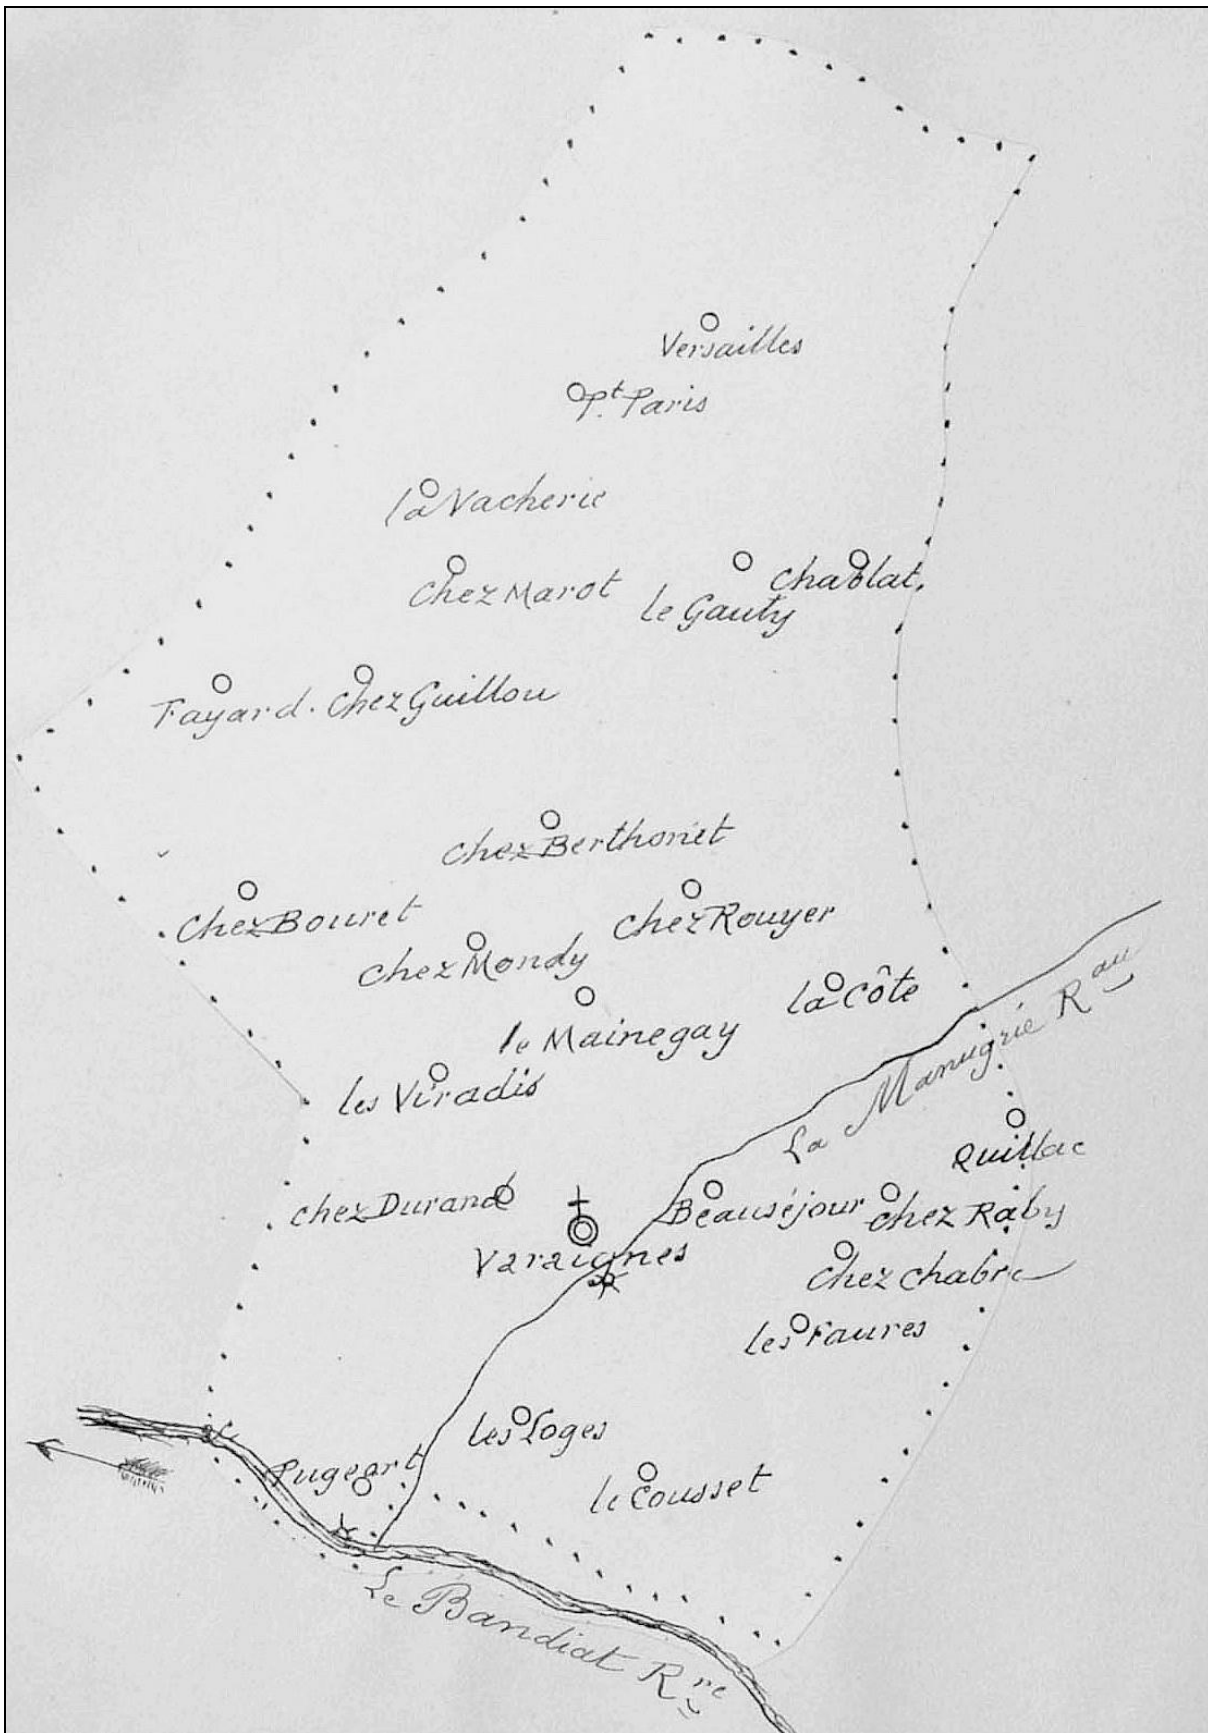 Versailles
Pt. Paris
la Vacherie
chez Marot
le Gauty
Chablat.
Fayard.
chez Guillou
chez Berthoriet
chez Bouret
chez Rouyer
chez Mondy
la Côte
le Mainegay
les Viradis
La Manugrie Rau
Quillac
chez Durand
Beauséjour
chez Raby
Varaignes
chez chabre
les Faures
les Loges
Lugeart
le Cousset
Le Bandiat Rre